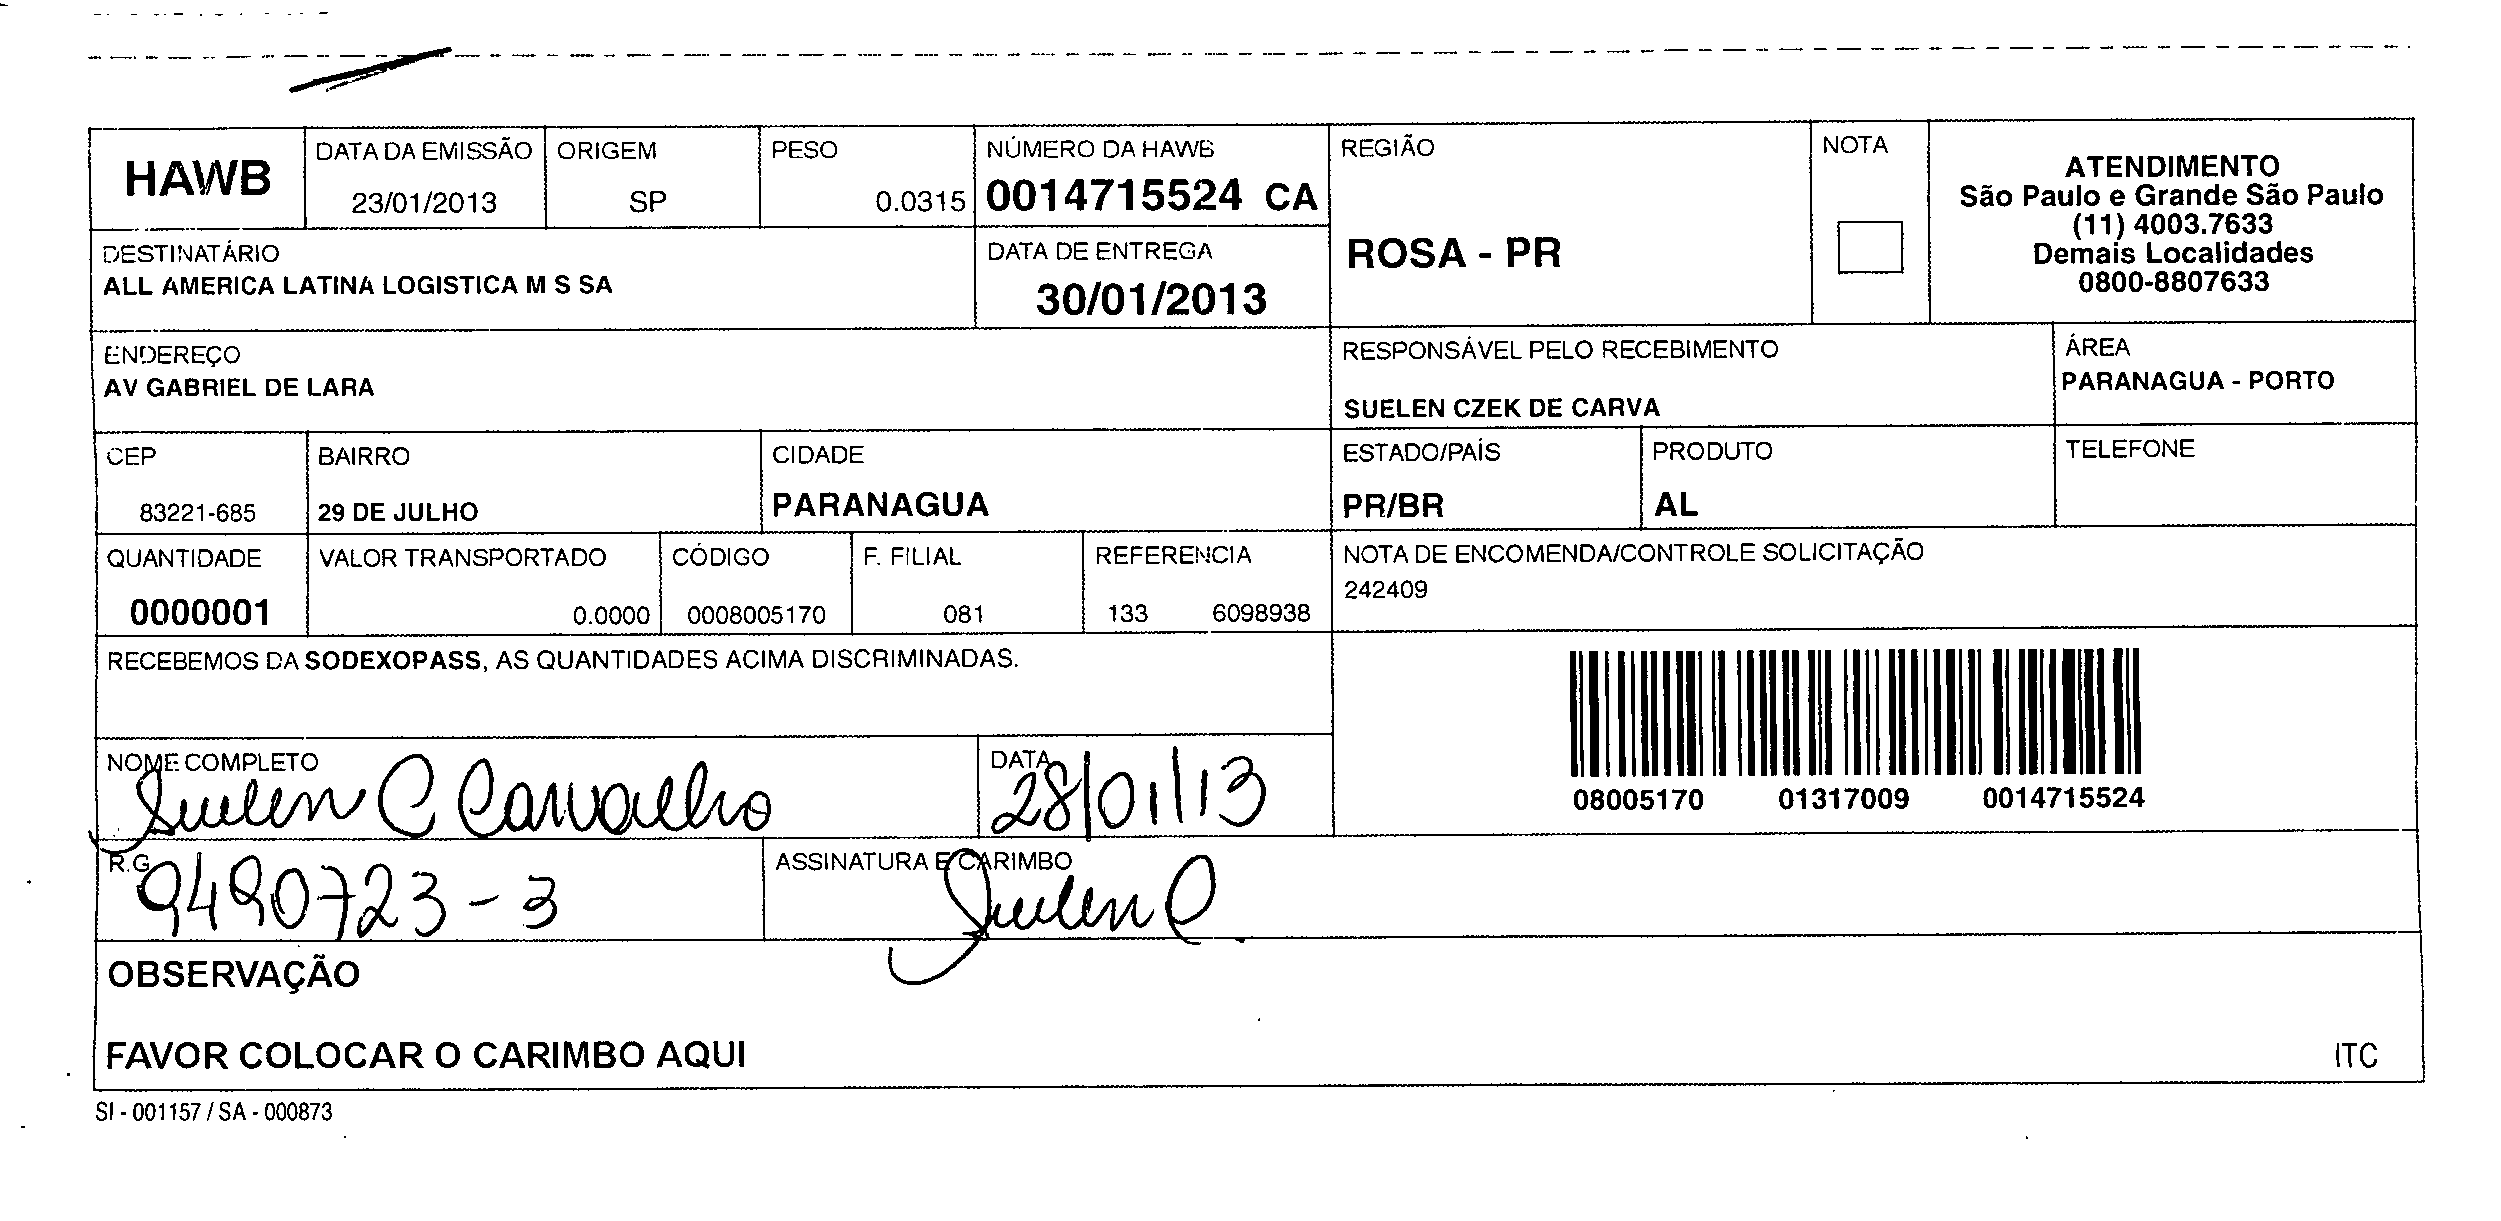 HAWB
DATA DA EMISSÃO
23/01/2013
ORIGEM
SP
PESO
0.0315
NÚMERO DA HAWB
0014715524 CA
REGIÃO
ROSA - PR
NOTA
ATENDIMENTO
São Paulo e Grande São Paulo
(11) 4003.7633
Demais Localidades
0800-8807633
DESTINATÁRIO
ALL AMERICA LATINA LOGISTICA M S SA
DATA DE ENTREGA
30/01/2013
ENDEREÇO
AV GABRIEL DE LARA
RESPONSÁVEL PELO RECEBIMENTO
SUELEN CZEK DE CARVA
ÁREA
PARANAGUA - PORTO
CEP
83221-685
BAIRRO
29 DE JULHO
CIDADE
PARANAGUA
ESTADO/PAÍS
PR/BR
PRODUTO
AL
TELEFONE
QUANTIDADE
0000001
VALOR TRANSPORTADO
0.0000
CÓDIGO
0008005170
F. FILIAL
081
REFERENCIA
133 6098938
NOTA DE ENCOMENDA/CONTROLE SOLICITAÇÃO
242409
RECEBEMOS DA SODEXOPASS, AS QUANTIDADES ACIMA DISCRIMINADAS.
08005170 01317009 0014715524
NOME COMPLETO
Suelen C Carvalho
DATA
28/01/13
R.G
9490723-3
ASSINATURA E CARIMBO
Suelen C.
OBSERVAÇÃO
FAVOR COLOCAR O CARIMBO AQUI
ITC
SI - 001157 / SA - 000873